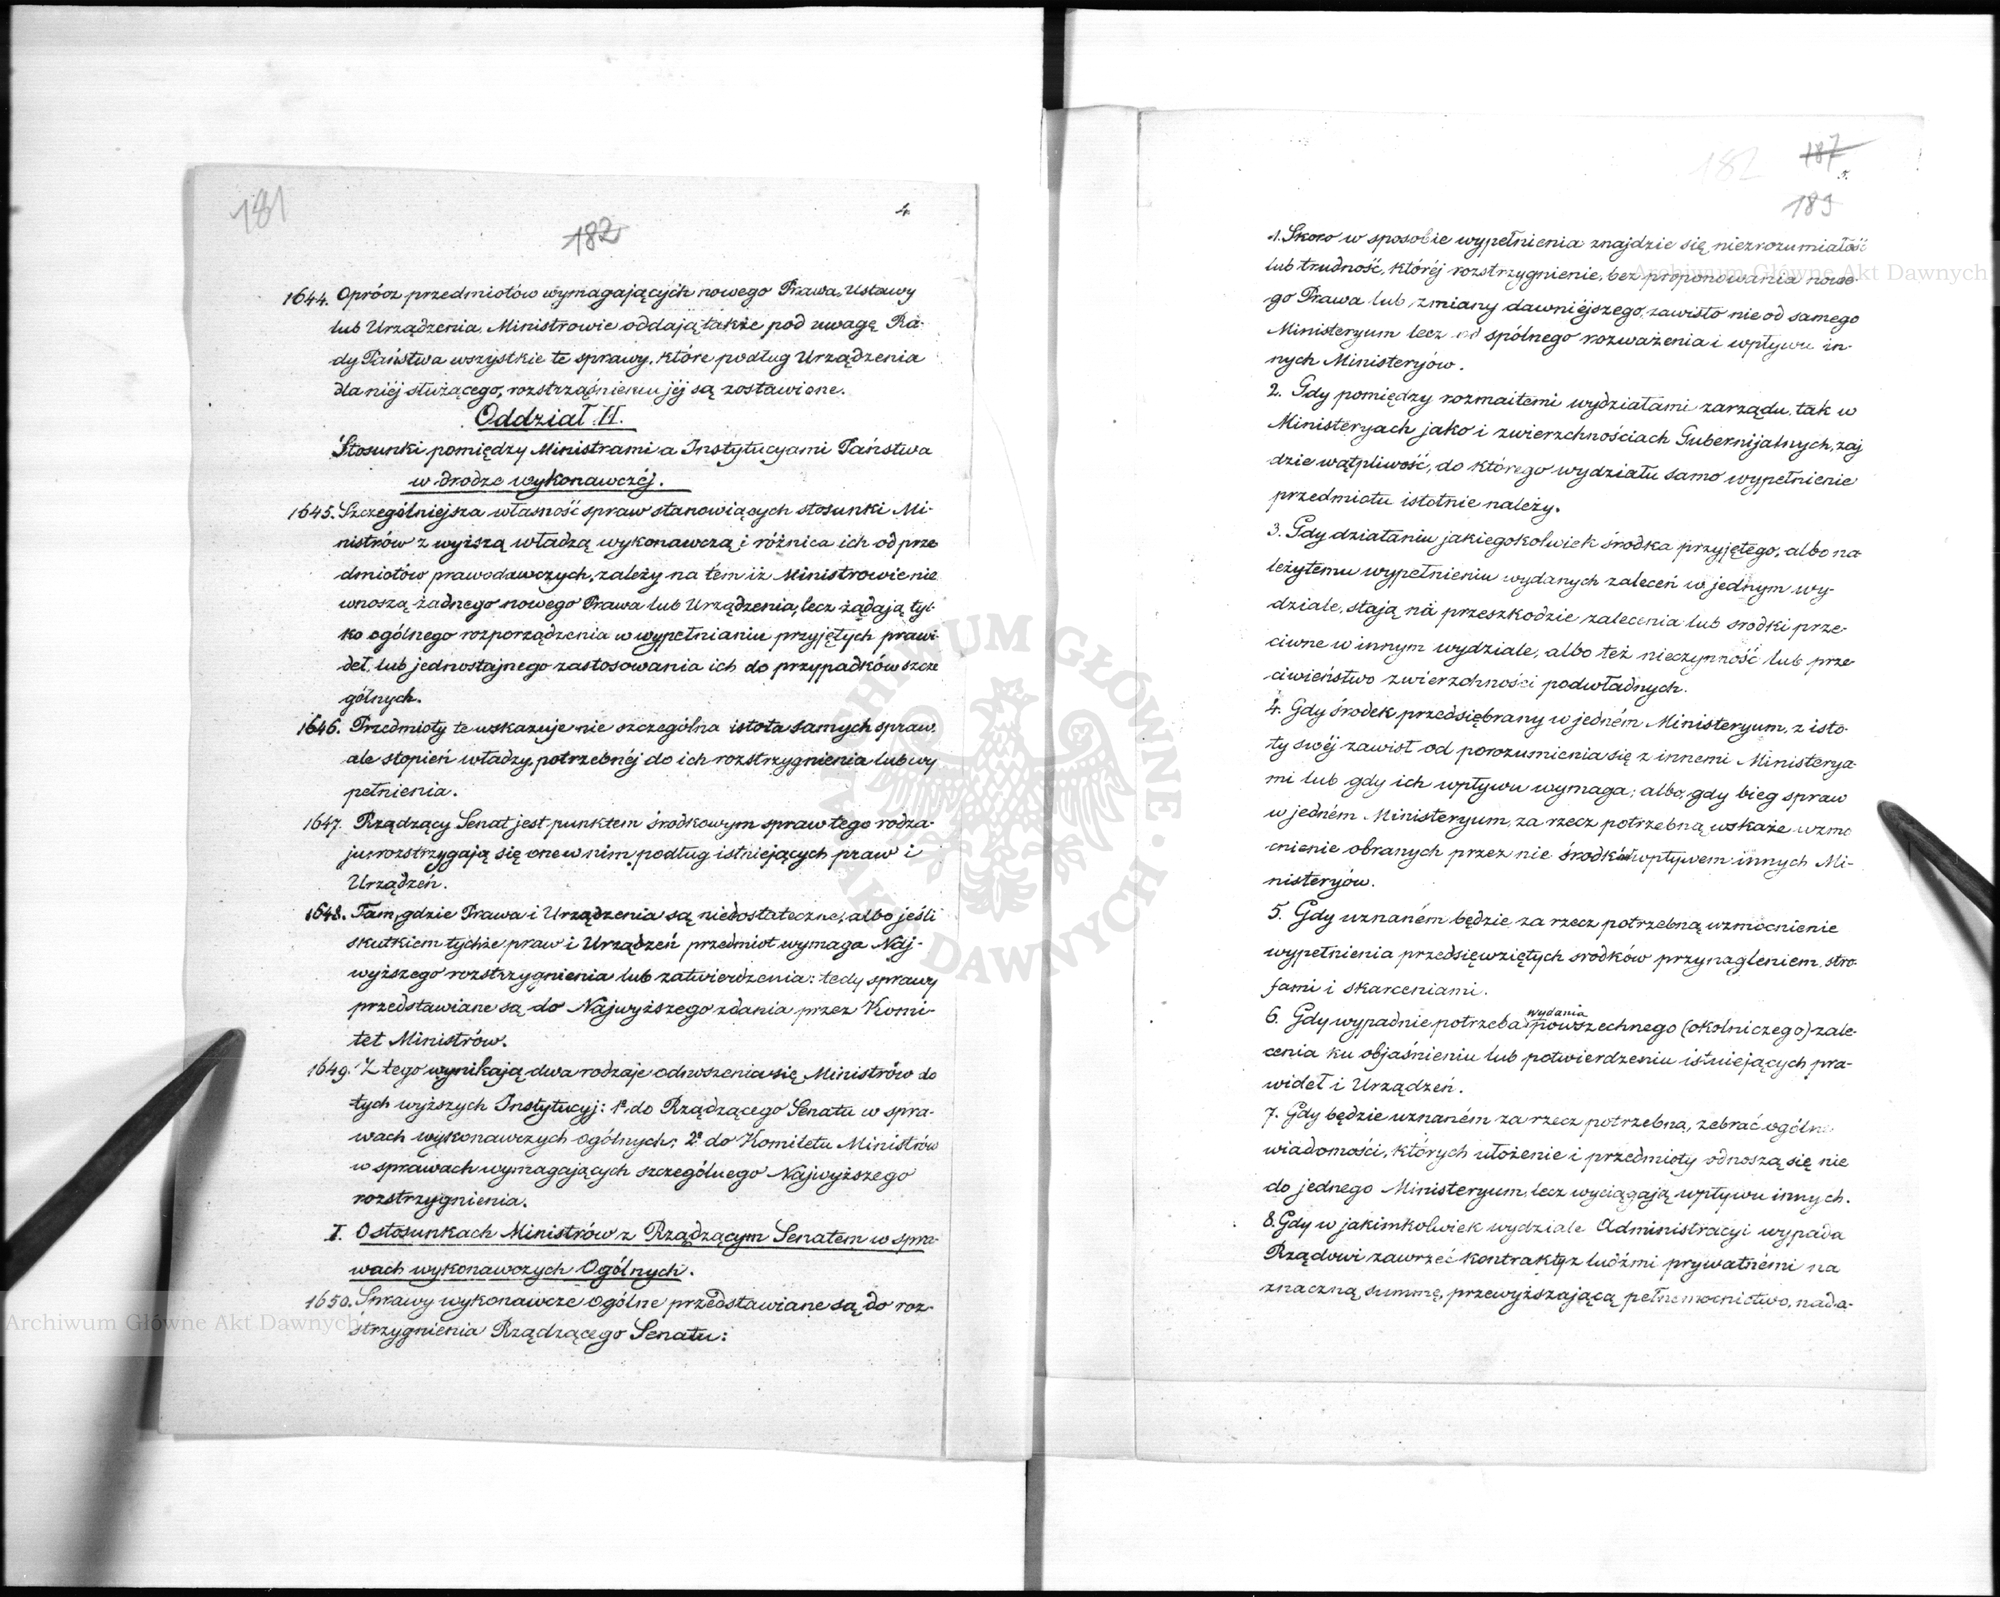 181
182
4.
1644. Oprócz przedmiotów wymagających nowego Prawa, Ustawy
lub Urządzenia, Ministrowie oddają także pod uwagę Ra-
dy Państwa wszystkie te sprawy, które podług Urządzenia
dla niéj służącego, rozstrząśnieniu jéj są zostawione.
Oddział II.
Stosunki pomiędzy Ministrami a Instytucyami Państwa
w drodze wykonawczéj.
1645. Szczególniejsza własność spraw stanowiących stosunki Mi-
nistrów z wyższą władzą wykonawczą i różnica ich od prze
dmiotów prawodawczych, zależy na tém iż Ministrowie nie
wnoszą żadnego nowego Prawa lub Urządzenia, lecz żądają tyl-
ko ogólnego rozporządzenia w wypełnianiu przyjętych prawi-
deł, lub jednostajnego zastosowania ich do przypadków szcze
gólnych.
1646. Przedmioty te wskazuje nie szczególna istota samych spraw,
ale stopień władzy, potrzebnéj do ich rozstrzygnienia lub wy
pełnienia.
1647. Rządzący Senat jest punktem środkowym spraw tego rodza-
ju: rozstrzygają się one w nim podług istniejących praw i
Urządzeń.
1648. Tam, gdzie Prawa i Urządzenia są niedostateczne, albo jeśli
skutkiem tychże praw i Urządzeń przedmiot wymaga Naj-
wyższego rozstrzygnienia lub zatwierdzenia: tedy sprawy
przedstawiane są do Najwyższego zdania przez Komi-
tet Ministrów.
1649. Z tego wynikają dwa rodzaje odnoszenia się Ministrów do
tych wyższych Instytucyj: 1º do Rządzącego Senatu w spra-
wach wykonawczych ogólnych; 2º do Komitetu Ministrów
w sprawach wymagających szczególnego Najwyższego
rozstrzygnienia.
I. O stosunkach Ministrów z Rządzącym Senatem w spra-
wach wykonawczych Ogólnych.
1650. Sprawy wykonawcze ogólne przedstawiane są do roz-
strzygnienia Rządzącego Senatu:
182
187
5.
183
1. Skoro w sposobie wypełnienia znajdzie się niezrozumiałość
lub trudność, któréj rozstrzygnienie, bez proponowania nowe-
go Prawa lub zmiany dawniejszego, zawisło nie od samego
Ministeryum lecz od spólnego rozważenia i wpływu in-
nych Ministeryów.
2. Gdy pomiędzy rozmaitemi wydziałami zarządu, tak w
Ministeryach jako i zwierzchnościach Gubernijalnych, zaj
dzie wątpliwość, do którego wydziału samo wypełnienie
przedmiotu istotnie należy.
3. Gdy działaniu jakiegokolwiek środka przyjętego, albo na-
leżytemu wypełnieniu wydanych zaleceń w jednym wy-
dziale, stają na przeszkodzie zalecenia lub srodki prze-
ciwne w innym wydziale, albo też nieczynność lub prze
ciwieństwo zwierzchności podwładnych.
4. Gdy środek przedsiębrany w jedném Ministeryum, z isto-
ty swéj zawisł od porozumienia się z innemi Ministerya-
mi lub gdy ich wpływu wymaga; albo, gdy bieg spraw
w jedném Ministeryum, za rzecz potrzebną wskaże wzmo
cnienie obranych przez nie środków wpływem innych Mi-
nisteryów.
5. Gdy uznaném będzie za rzecz potrzebną wzmocnienie
wypełnienia przedsięwziętych srodków przynagleniem, stro-
fami i skarceniami.
6. Gdy wypadnie potrzeba wydania powszechnego (okolniczego) zale-
cenia ku objaśnieniu lub potwierdzeniu istniejących pra-
wideł i Urządzeń.
7. Gdy będzie uznaném za rzecz potrzebną, zebrać ogólne
wiadomości, których ułożenie i przedmioty odnoszą się nie
do jednego Ministeryum, lecz wyciągają wpływu innych.
8. Gdy w jakimkolwiek wydziale Administracyi wypada
Rządowi zawrzeć kontrakty z ludźmi prywatnémi na
znaczną summę, przewyższającą pełnomocnictwo, nada-
Archiwum Główne Akt Dawnych
Archiwum Główne Akt Dawnych
ARCHIWUM GŁÓWNE · AKT DAWNYCH ·